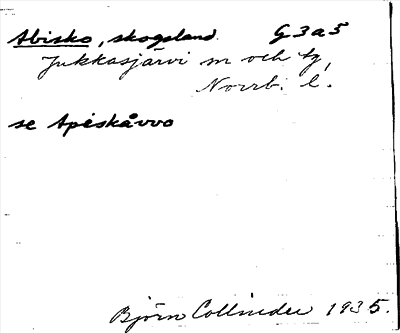 Abisko, skogsland. G 3 a 5
Jukkasjärvi sn och tg,
Norrb. l.
se Apéskåvvo
Björn Collinder 1935.